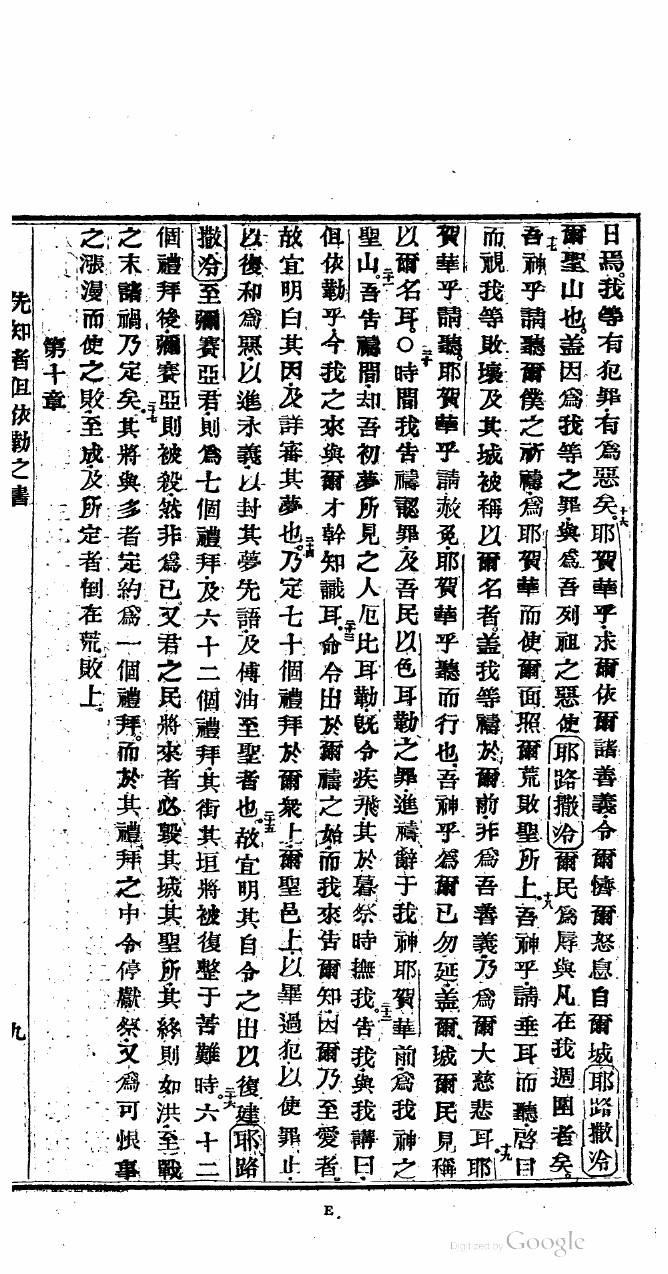 日焉。我等有犯罪、有爲惡矣。十六耶賀華乎、求爾依爾諸善義、令爾憤爾怒息自爾城耶路撒冷
爾聖山也。蓋因爲我等之罪、與爲吾列祖之惡、使耶路撒冷爾民爲辱與凡在我週圍者矣。
十七吾神乎、請聽爾僕之祈禱、爲耶賀華而使爾面照爾荒敗聖所上。十八吾神乎、請垂耳而聽、啓目
而視我等敗壞、及其城被稱以爾名者。蓋我等禱於爾前、非爲吾善義、乃爲爾大慈悲耳。十九耶
賀華乎、請聽。耶賀華乎、請赦免。耶賀華乎、聽而行也。吾神乎、爲爾已勿延、蓋爾城爾民見稱
以爾名耳。○二十時間我告禱認罪、及吾民以色耳勒之罪、進禱辭于我神耶賀華前、爲我神之
聖山、二十一吾告禱間、却吾初夢所見之人厄比耳勒、旣令疾飛、其於暮祭時撫我。二十二告我與我講曰、
但依勒乎、今我之來與爾才幹知識耳。二十三命令出於爾禱之始、而我來告爾知、因爾乃至愛者。
故宜明白其因、及詳審其夢也。二十四乃定七十個禮拜於爾衆上、爾聖邑上、以畢過犯、以使罪止、
以復和爲惡、以進永義、以封其夢先語、及傅油至聖者也。二十五故宜明其自令之出以復建耶路
撒冷、至彌賽亞君、則爲七個禮拜、及六十二個禮拜、其街其垣將被復整于苦難時。二十六六十二
個禮拜後、彌賽亞則被殺、然非爲己。又君之民將來者必毀其城、其聖所、其終則如洪、至戰
之末、諸禍乃定矣。二十七其將與多者定約爲一個禮拜。而於其禮拜之中、令停獻祭、又爲可恨事
之漲漫而使之敗、至成、及所定者倒在荒敗上。
第十章
先知者但依勒之書
九
E.
Digitized by Google